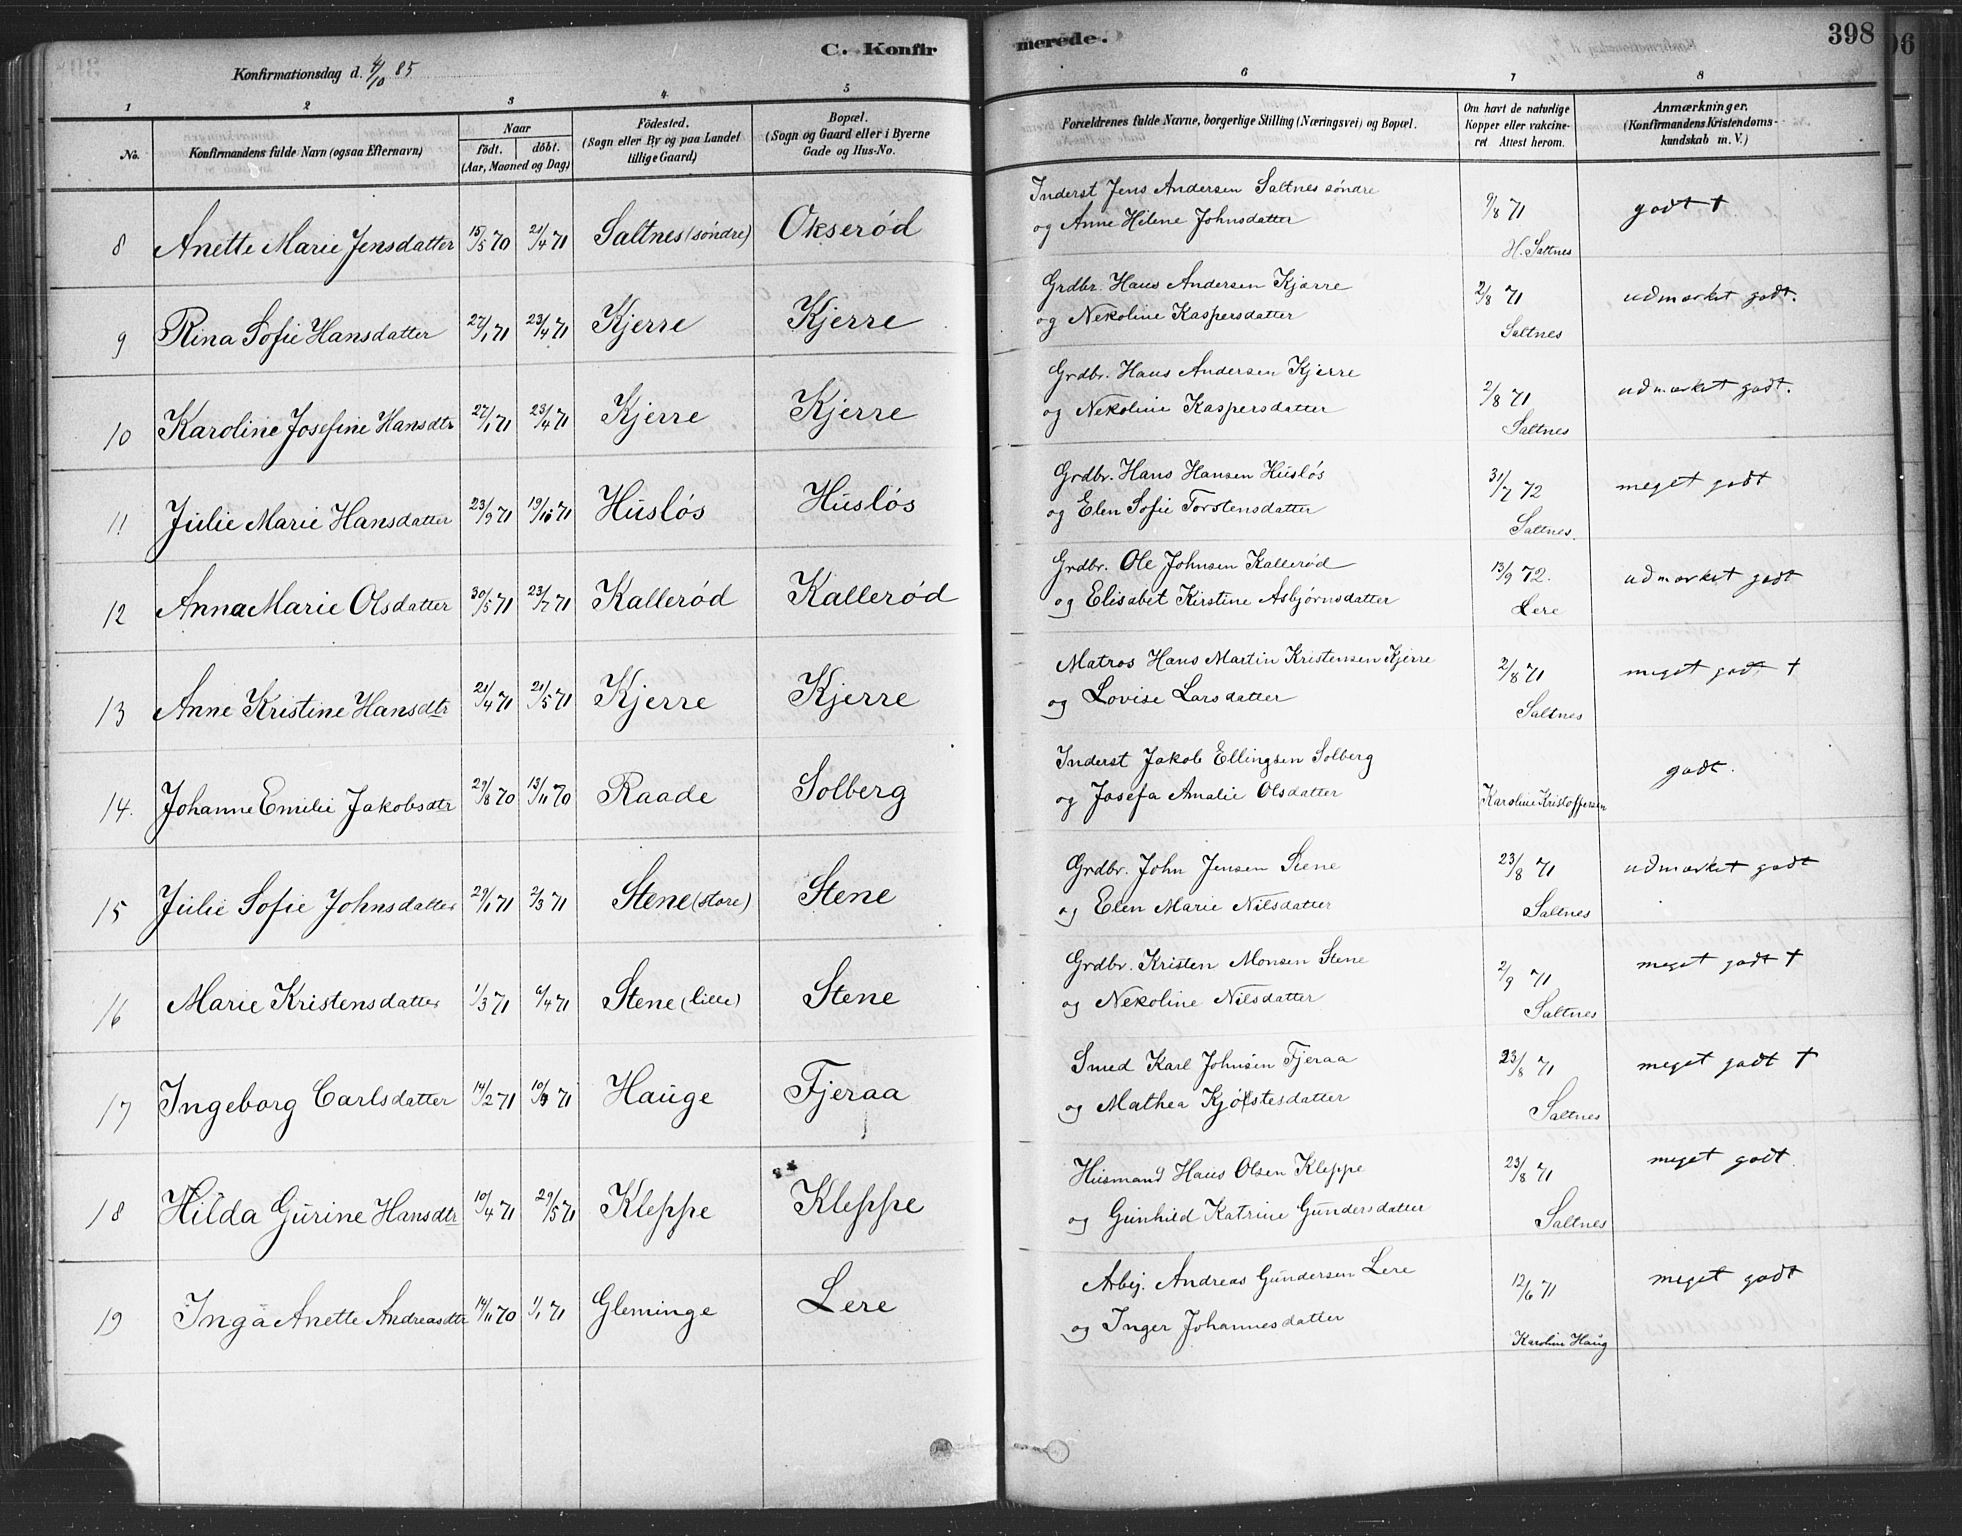 C. Konfirmerede.
398
Konfirmationsdag d. 4/10 85
1 2 3 4 5 6 7 8
No.
Konfirmandens fulde Navn (ogsaa Efternavn)
Naar
födt. döbt.
(Aar, Maaned og Dag)
Födested.
(Sogn eller By og paa Landet
tillige Gaard)
Bopæl.
(Sogn og Gaard eller i Byerne
Gade og Hus-No.
Forældrenes fulde Navne, borgerlige Stilling (Næringsvei) og Bopæl.
Om havt de naturlige
Kopper eller vakcine-
ret Attest herom.
Anmærkninger.
(Konfirmandens Kristendoms-
kundskab m. V.)
8 Anette Marie Jensdatter 15/5 70 21/4 71 Saltnes (søndre) Okserød
Inderst Jens Andersen Saltnes søndre
og Anne Helene Johnsdatter
9/8 71
H. Saltnes
godt †
9 Rina Sofie Hansdatter 27/1 71 23/4 71 Kjerre Kjerre
Grdbr. Hans Andersen Kjærre
og Nekoline Kaspersdatter
2/8 71
Saltnes
udmærket godt.
10 Karoline Josefine Hansdtr 27/1 71 23/4 71 Kjerre Kjerre
Grdbr. Hans Andersen Kjerre
og Nekoline Kaspersdatter
2/8 71
Saltnes
udmærket godt.
11 Julie Marie Hansdatter 23/9 71 19/10 71 Husløs Husløs
Grdbr. Hans Hansen Husløs
og Elen Sofie Torstensdatter
31/7 72
Saltnes.
meget godt
12 Anna Marie Olsdatter 30/5 71 23/7 71 Kallerød Kallerød
Grdbr. Ole Johnsen Kallerød
og Elisabet Kirstine Asbjørnsdatter
13/9 72.
Lere
udmærket godt
13 Anne Kristine Hansdtr 21/4 71 21/5 71 Kjerre Kjerre
Matros Hans Martin Kristensen Kjerre
og Lovise Larsdatter
2/8 71
Saltnes
meget godt †
14. Johanne Emilie Jakobsdtr 29/8 70 13/11 70 Raade Solberg
Inderst Jakob Ellingsen Solberg
og Josefa Amalie Olsdatter
Karoline Kristoffersen
godt.
15 Julie Sofie Johnsdatter 29/1 71 2/3 71 Stene (store) Stene
Grdbr. John Jensen Stene
og Elen Marie Nilsdatter
23/8 71
Saltnes
udmærket godt
16 Marie Kristensdatter 1/3 71 6/4 71 Stene (lille) Stene
Grdbr. Kristen Monsen Stene
og Nekoline Nilsdatter
2/9 71
Saltnes
meget godt †
17 Ingeborg Carlsdatter 14/2 71 71 Hauge Fjeraa
Smed Karl Johnsen Fjeraa
og Mathea
23/8 71
Saltnes
meget godt †
18 Hilda Gurine Hansdtr 10/4 71 29/5 71 Kleppe Kleppe
Husmand Hans Olsen Kleppe
og Gunhild Katrine Gundersdatter
23/8 71
Saltnes
meget godt.
19 Inga Anette Andreasdtr 14/11 70 1/1 71 Gleminge Lere
Arbej. Andreas Gundersen Lere
og Inger Johannesdatter
12/6 71
Karolin Haug
meget godt